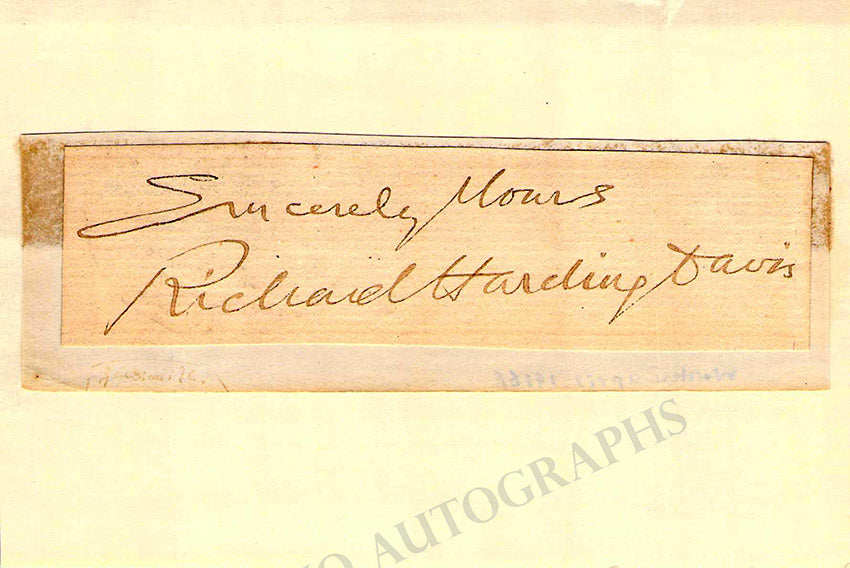 Sincerely Yours
Richard Harding Davis
AUTOGRAPHS